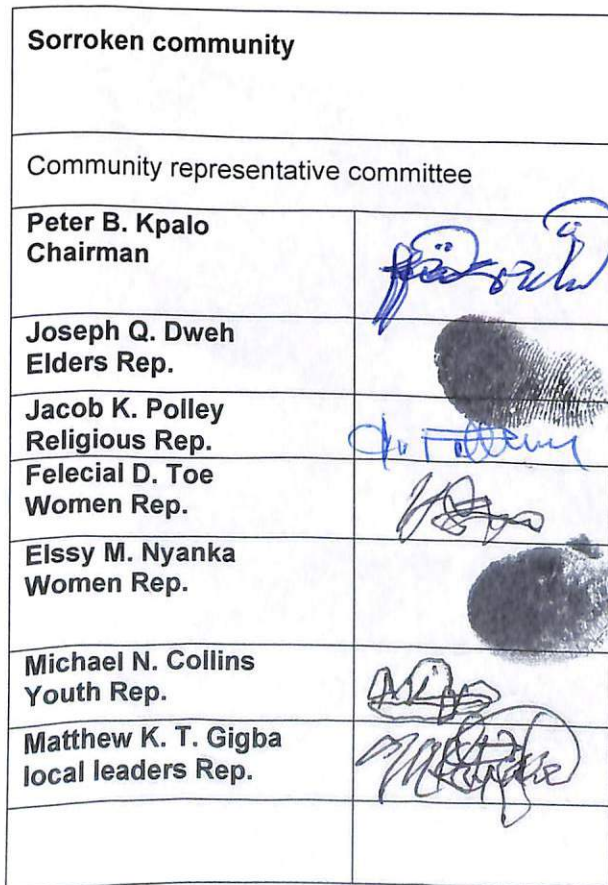 Sorroken community
Community representative committee
Peter B. Kpalo
Chairman
Joseph Q. Dweh
Elders Rep.
Jacob K. Polley
Religious Rep.
Felecial D. Toe
Women Rep.
Elssy M. Nyanka
Women Rep.
Michael N. Collins
Youth Rep.
Matthew K. T. Gigba
local leaders Rep.